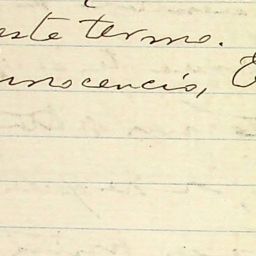 este termo.
Innocencio, E